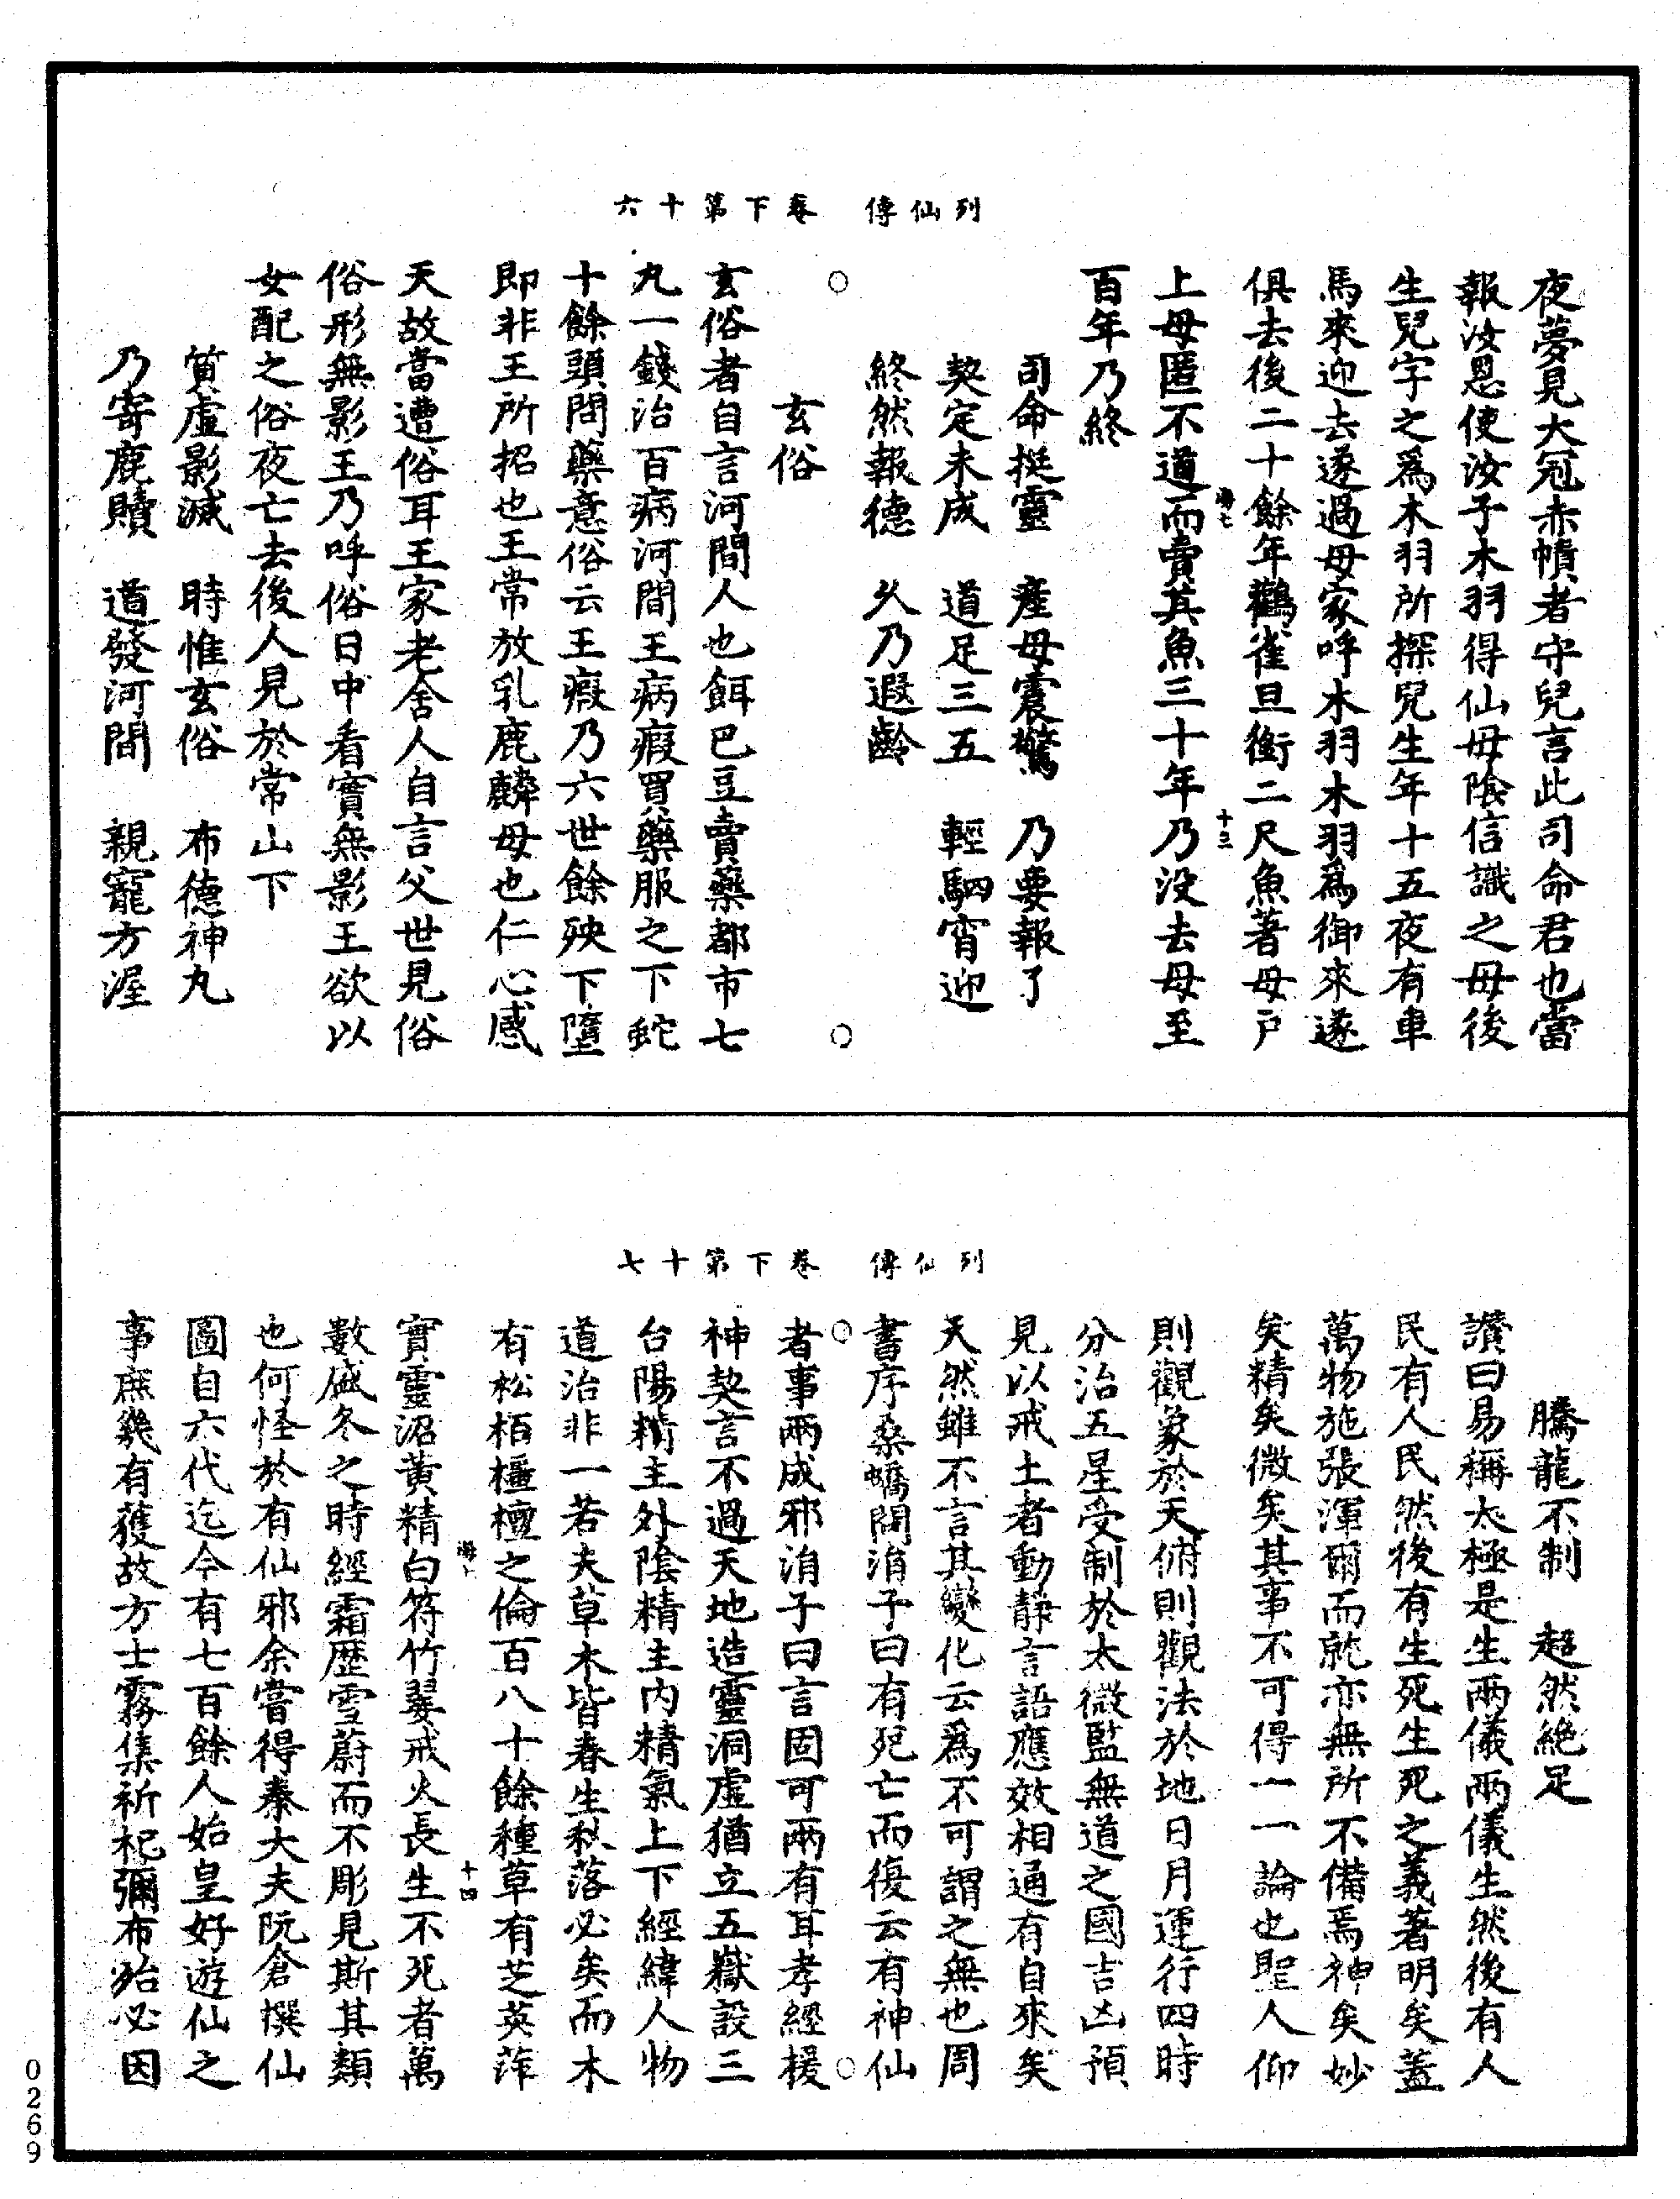 列仙傳 卷下第十六
夜夢見大冠赤幘者守兒言此司命君也當
報汝恩使汝子木羽得仙母陰信識之母後
生兒字之爲木羽所探兒生年十五夜有車
馬來迎去遂過母家呼木羽木羽爲御來遂
俱去後二十餘年鸛雀旦銜二尺魚著母戶
海七 十三
上母匿不道而賣其魚三十年乃没去母至
百年乃終
司命挺靈 産母震驚 乃要報了
契定未成 道足三五 輕駟宵迎
終然報德 乆乃遐齡
○ 玄俗 ○
玄俗者自言河間人也餌巴豆賣藥都市七
丸一錢治百病河間王病瘕買藥服之下蛇
十餘頭問藥意俗云王瘕乃六世餘殃下墮
即非王所招也王常放乳鹿麟母也仁心感
天故當遭俗耳王家老舍人自言父世見俗
俗形無影王乃呼俗日中看實無影王欲以
女配之俗夜亡去後人見於常山下
質虛影滅 時惟玄俗 布德神丸
乃寄鹿贖 道發河間 親寵方渥
列仙傳 卷下第十七
騰龍不制 超然絶足
讚曰易稱太極是生兩儀兩儀生然後有人
民有人民然後有生死生死之義著明矣蓋
萬物施張渾爾而就亦無所不備焉神矣妙
矣精矣微矣其事不可得一一論也聖人仰
則觀象於天俯則觀法於地日月運行四時
分治五星受制於太微監無道之國吉凶預
見以戒土者動靜言語應效相通有自來矣
天然雖不言其變化云爲不可謂之無也周
書序桑蟜問涓子曰有死亡而復云有神仙
○ ○
者事兩成邪涓子曰言固可兩有耳孝經援
神契言不過天地造靈洞虛猶立五嶽設三
台陽精主外陰精主内精氣上下經緯人物
道治非一若夫草木皆春生秋落必矣而木
有松栢橿檀之倫百八十餘種草有芝英萍
海七 十四
實靈沼黄精白符竹翣戒火長生不死者萬
數盛冬之時經霜歷雪蔚而不彫見斯其類
也何怪於有仙邪余嘗得秦大夫阮倉撰仙
圖自六代迄今有七百餘人始皇好遊仙之
事庶幾有獲故方士霧集祈祀彌布殆必因
0269